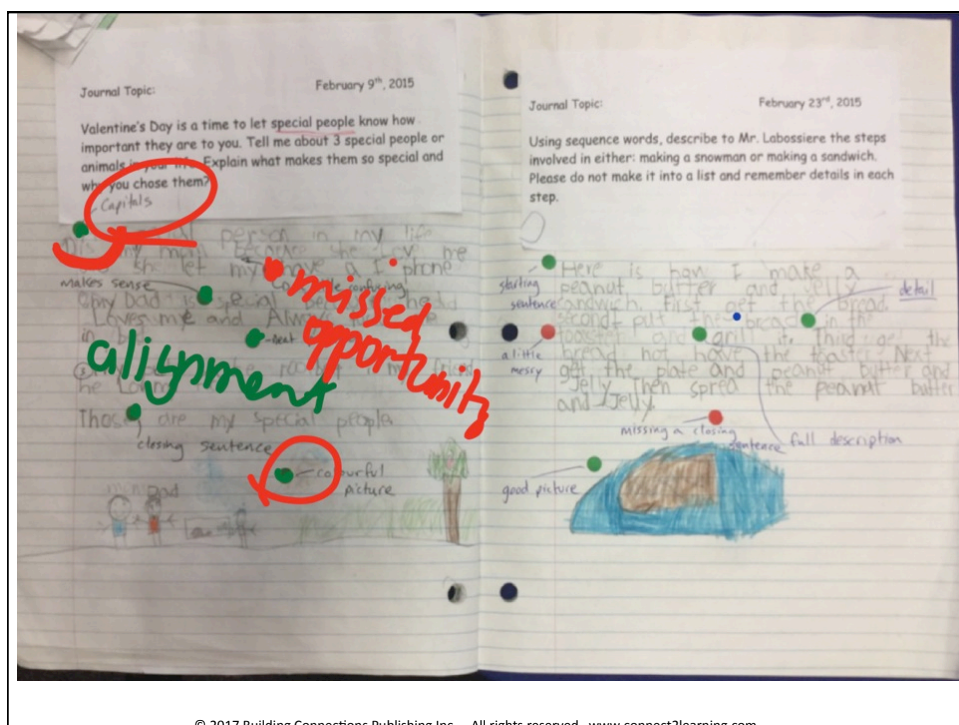 Journal Topic:
February 9th, 2015
Valentine's Day is a time to let special people know how
important they are to you. Tell me about 3 special people or
animals in your life. Explain what makes them so special and
why you chose them?
Capitals
person in my life
my mom because she love me
she let my have a I phone
makes sense
confusing
my Dad is special
Loves me and Always
neat
alignment
missed
opportunity
Those are my special people
closing sentence
colourful
picture
Dad
Journal Topic:
February 23rd, 2015
Using sequence words, describe to Mr. Labossiere the steps
involved in either: making a snowman or making a sandwich.
Please do not make it into a list and remember details in each
step.
Here is how I make a
starting
sentence
peanut butter and jelly
sandwich. First get the bread
detail
second put the bread in the
toaster and grill it. Third get the
a little
messy
bread not have the toaster. Next
get the plate and peanut butter and
Jelly. Then spread the peanut butter
and Jelly.
missing a closing
sentence
full description
good picture
© 2017 Building Connections Publishing Inc. All rights reserved. www.connect2learning.com